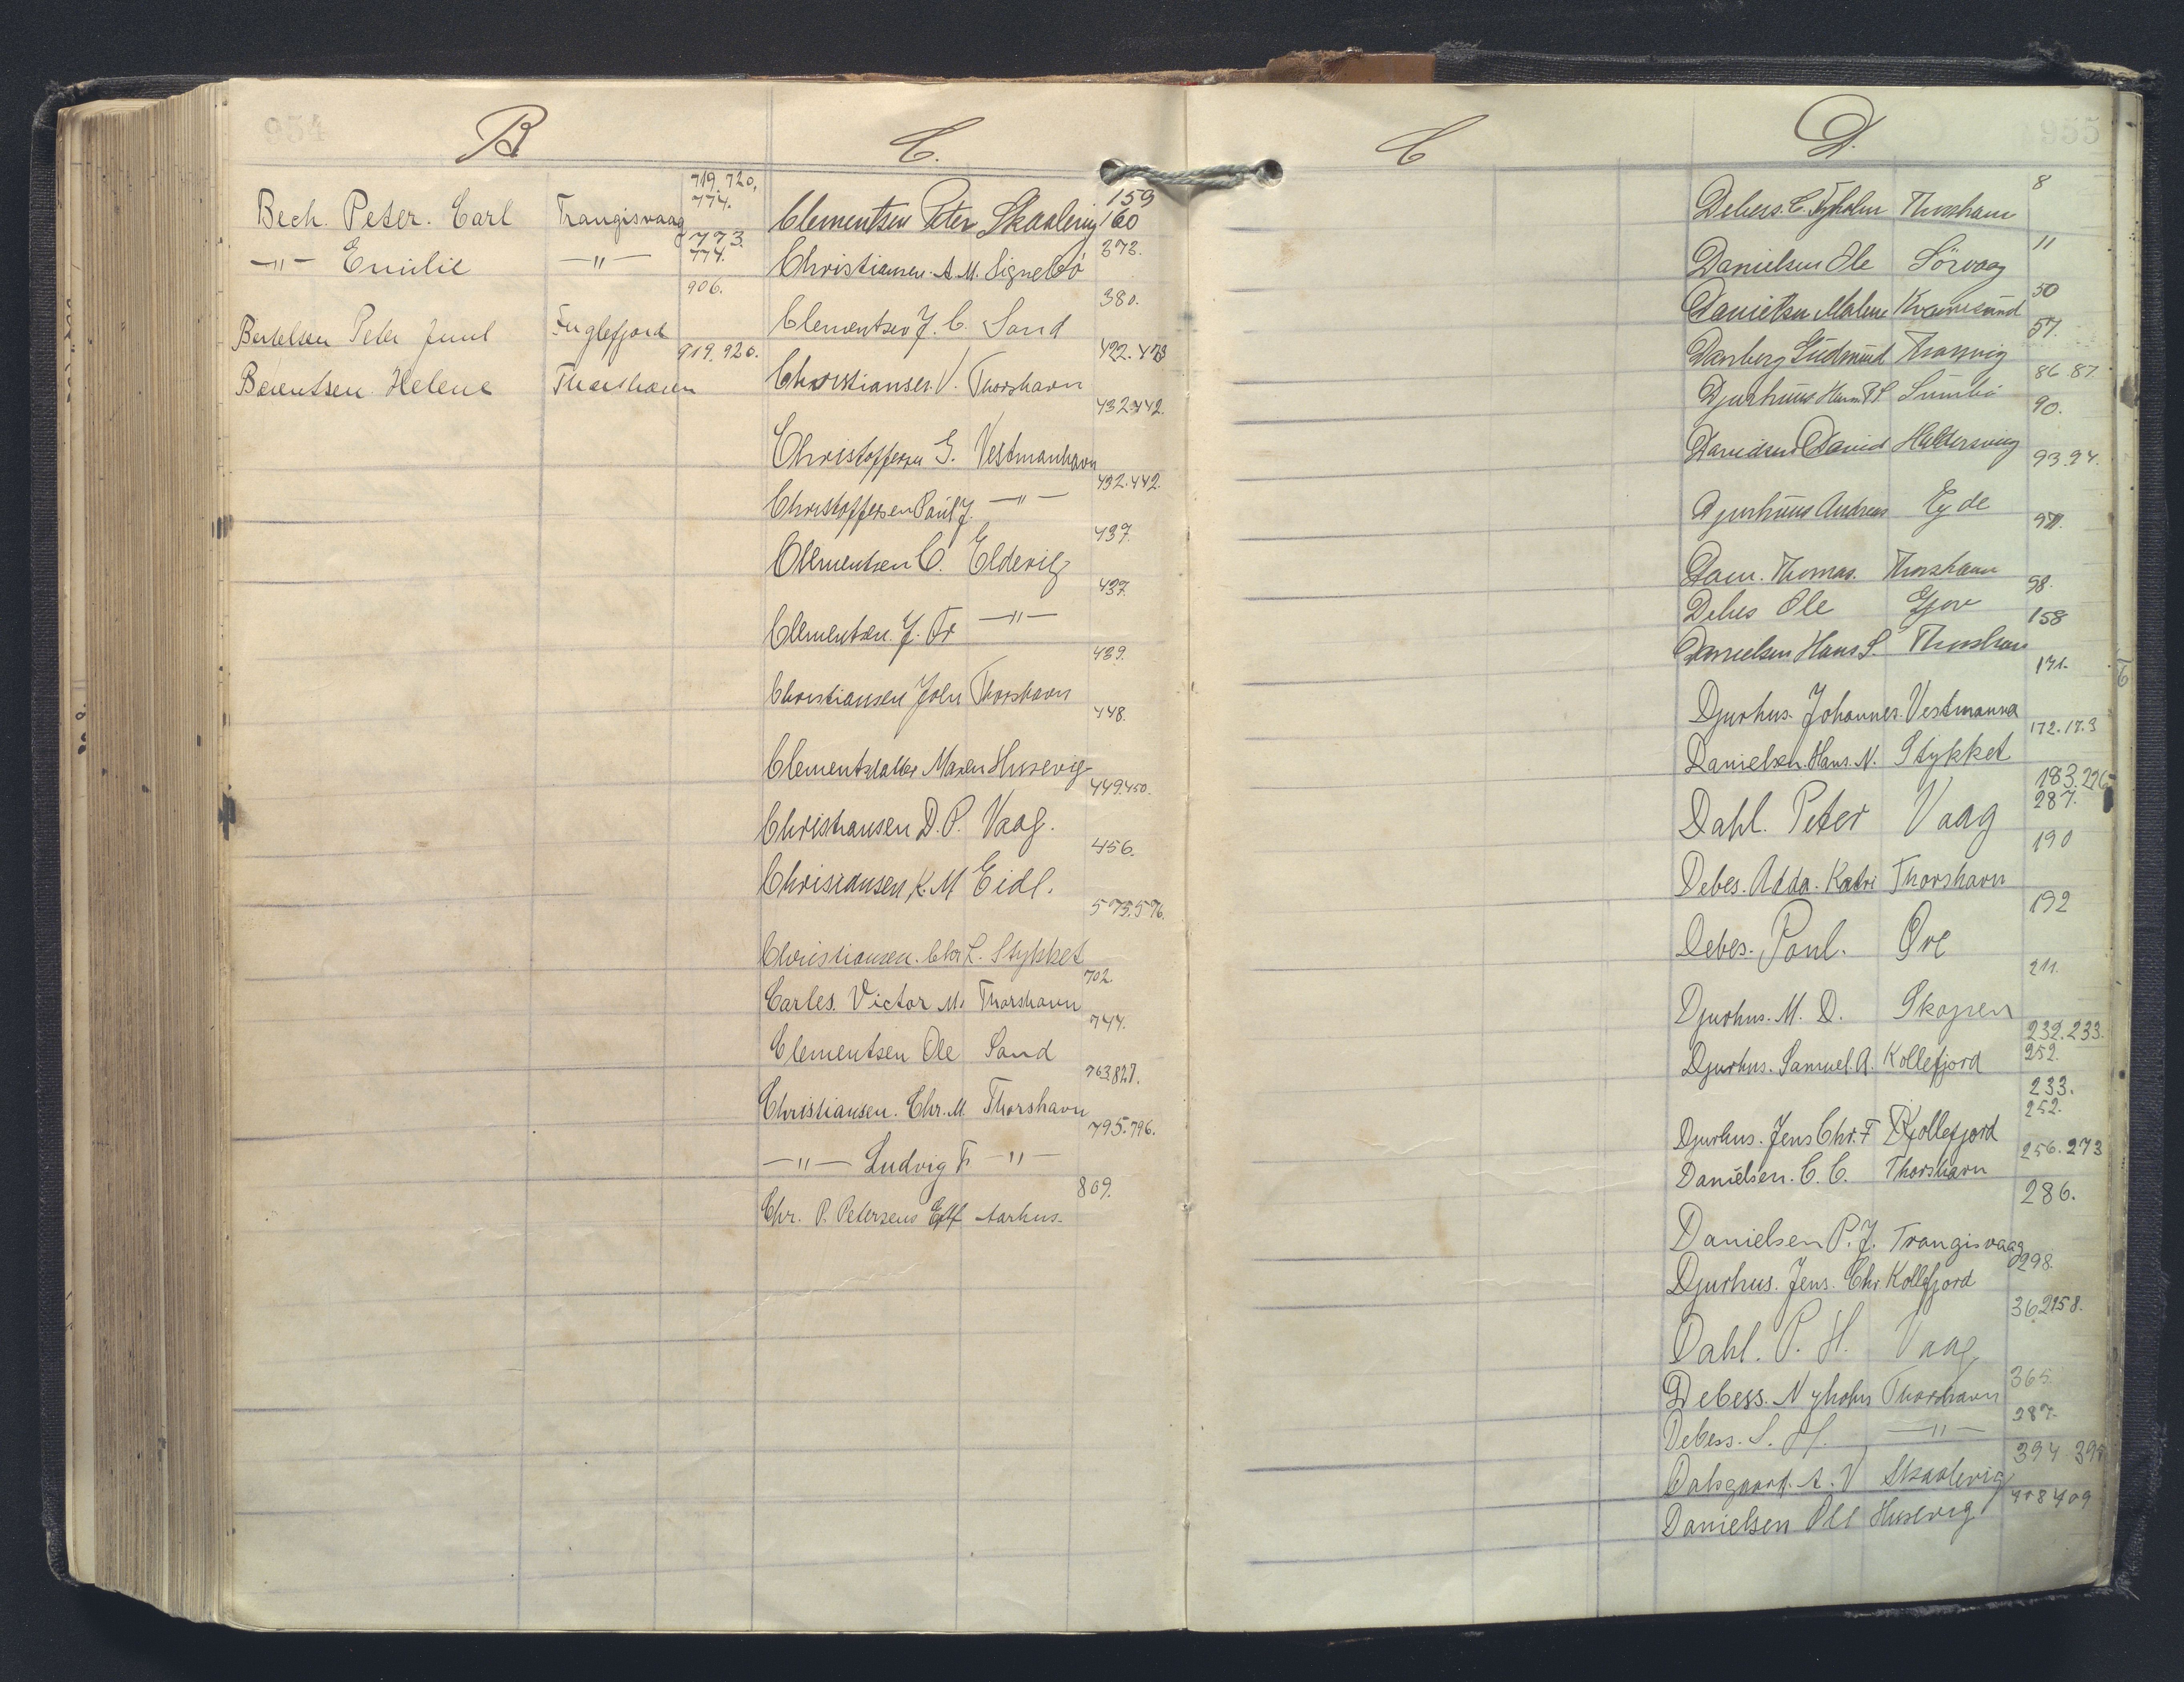 954
B
C.
719. 720,
774.
Bech. Peter. Carl Trangisvaag
773.
774.
-"- Emilie -"-
906.
Bertelsen Peter Juul Fuglefjord
919. 920.
Berentsen Helene Thorshavn
159
Clementsen Peter Skaalevig 160
373.
Christiansen. A. M. Signebö
380.
Clementsen J. C. Sand
422. 423
Christiansen. V. Thorshavn
432.442.
Christoffersen G. Vestmanhavn
432.442.
Christoffersen Paul J. -"-
437.
Clementsen C. Eldevig
437.
Clementsen. J. Fr -"-
439.
Christiansen John Thorshavn
448.
Clementsdatter Maren Husevig
449.450.
Christiansen D. P. Vaag.
456.
Christiansen K. M Eide.
575.576.
Christiansen. Chr L. Stykket
702.
Carles. Victor M. Thorshavn
744.
Clementsen Ole Sand
763.827.
Christiansen. Chr. M Thorshavn
795.796.
-"- Ludvig Fr -"-
809.
Chr. P. Petersens Eftf Aarhus.
C
D.
955
8
Debess. C. Nyholm Thorshavn
11
Danielsen Ole Sörvaag
50
Danielsen Malene Kvannesund
57.
Danberg Gudmund Trangvig
86.87.
Djurhuus Hans P Sumbö
90.
Davidsen David Haldersvig
93.94.
Djurhuus Andreas Ejde
97.
Dam. Thomas. Thorshavn
98.
Debes Ole Gjov
158
Danielsen Hans S. Thorshavn
171.
Djurhus. Johannes. Vestmanna
172.173
Danielsen Hans. N. Stykket
183.226
287.
Dahl. Peter Vaag
190
Debes. Adda. Katri Thorshavn
192
Debes. Poul. Ore
211.
Djurhus. M. D. Skopen
232.233.
252.
Djurhus. Samuel. A. Kollefjord
233.
252.
Djurhus. Jens Chr. F Kollefjord
256.273
Danielsen. C. C. Thorshavn
286.
Danielsen P. J. Trangisvaag
298.
Djurhus. Jens. Chr Kollefjord
Dahl. P. H. Vaag
365
Debess. Nyholm Thorshavn
387.
Debess. S. H. -"-
394
Dalsgaard. A. V Skaalevig
408 409
Danielsen Ole Husevig